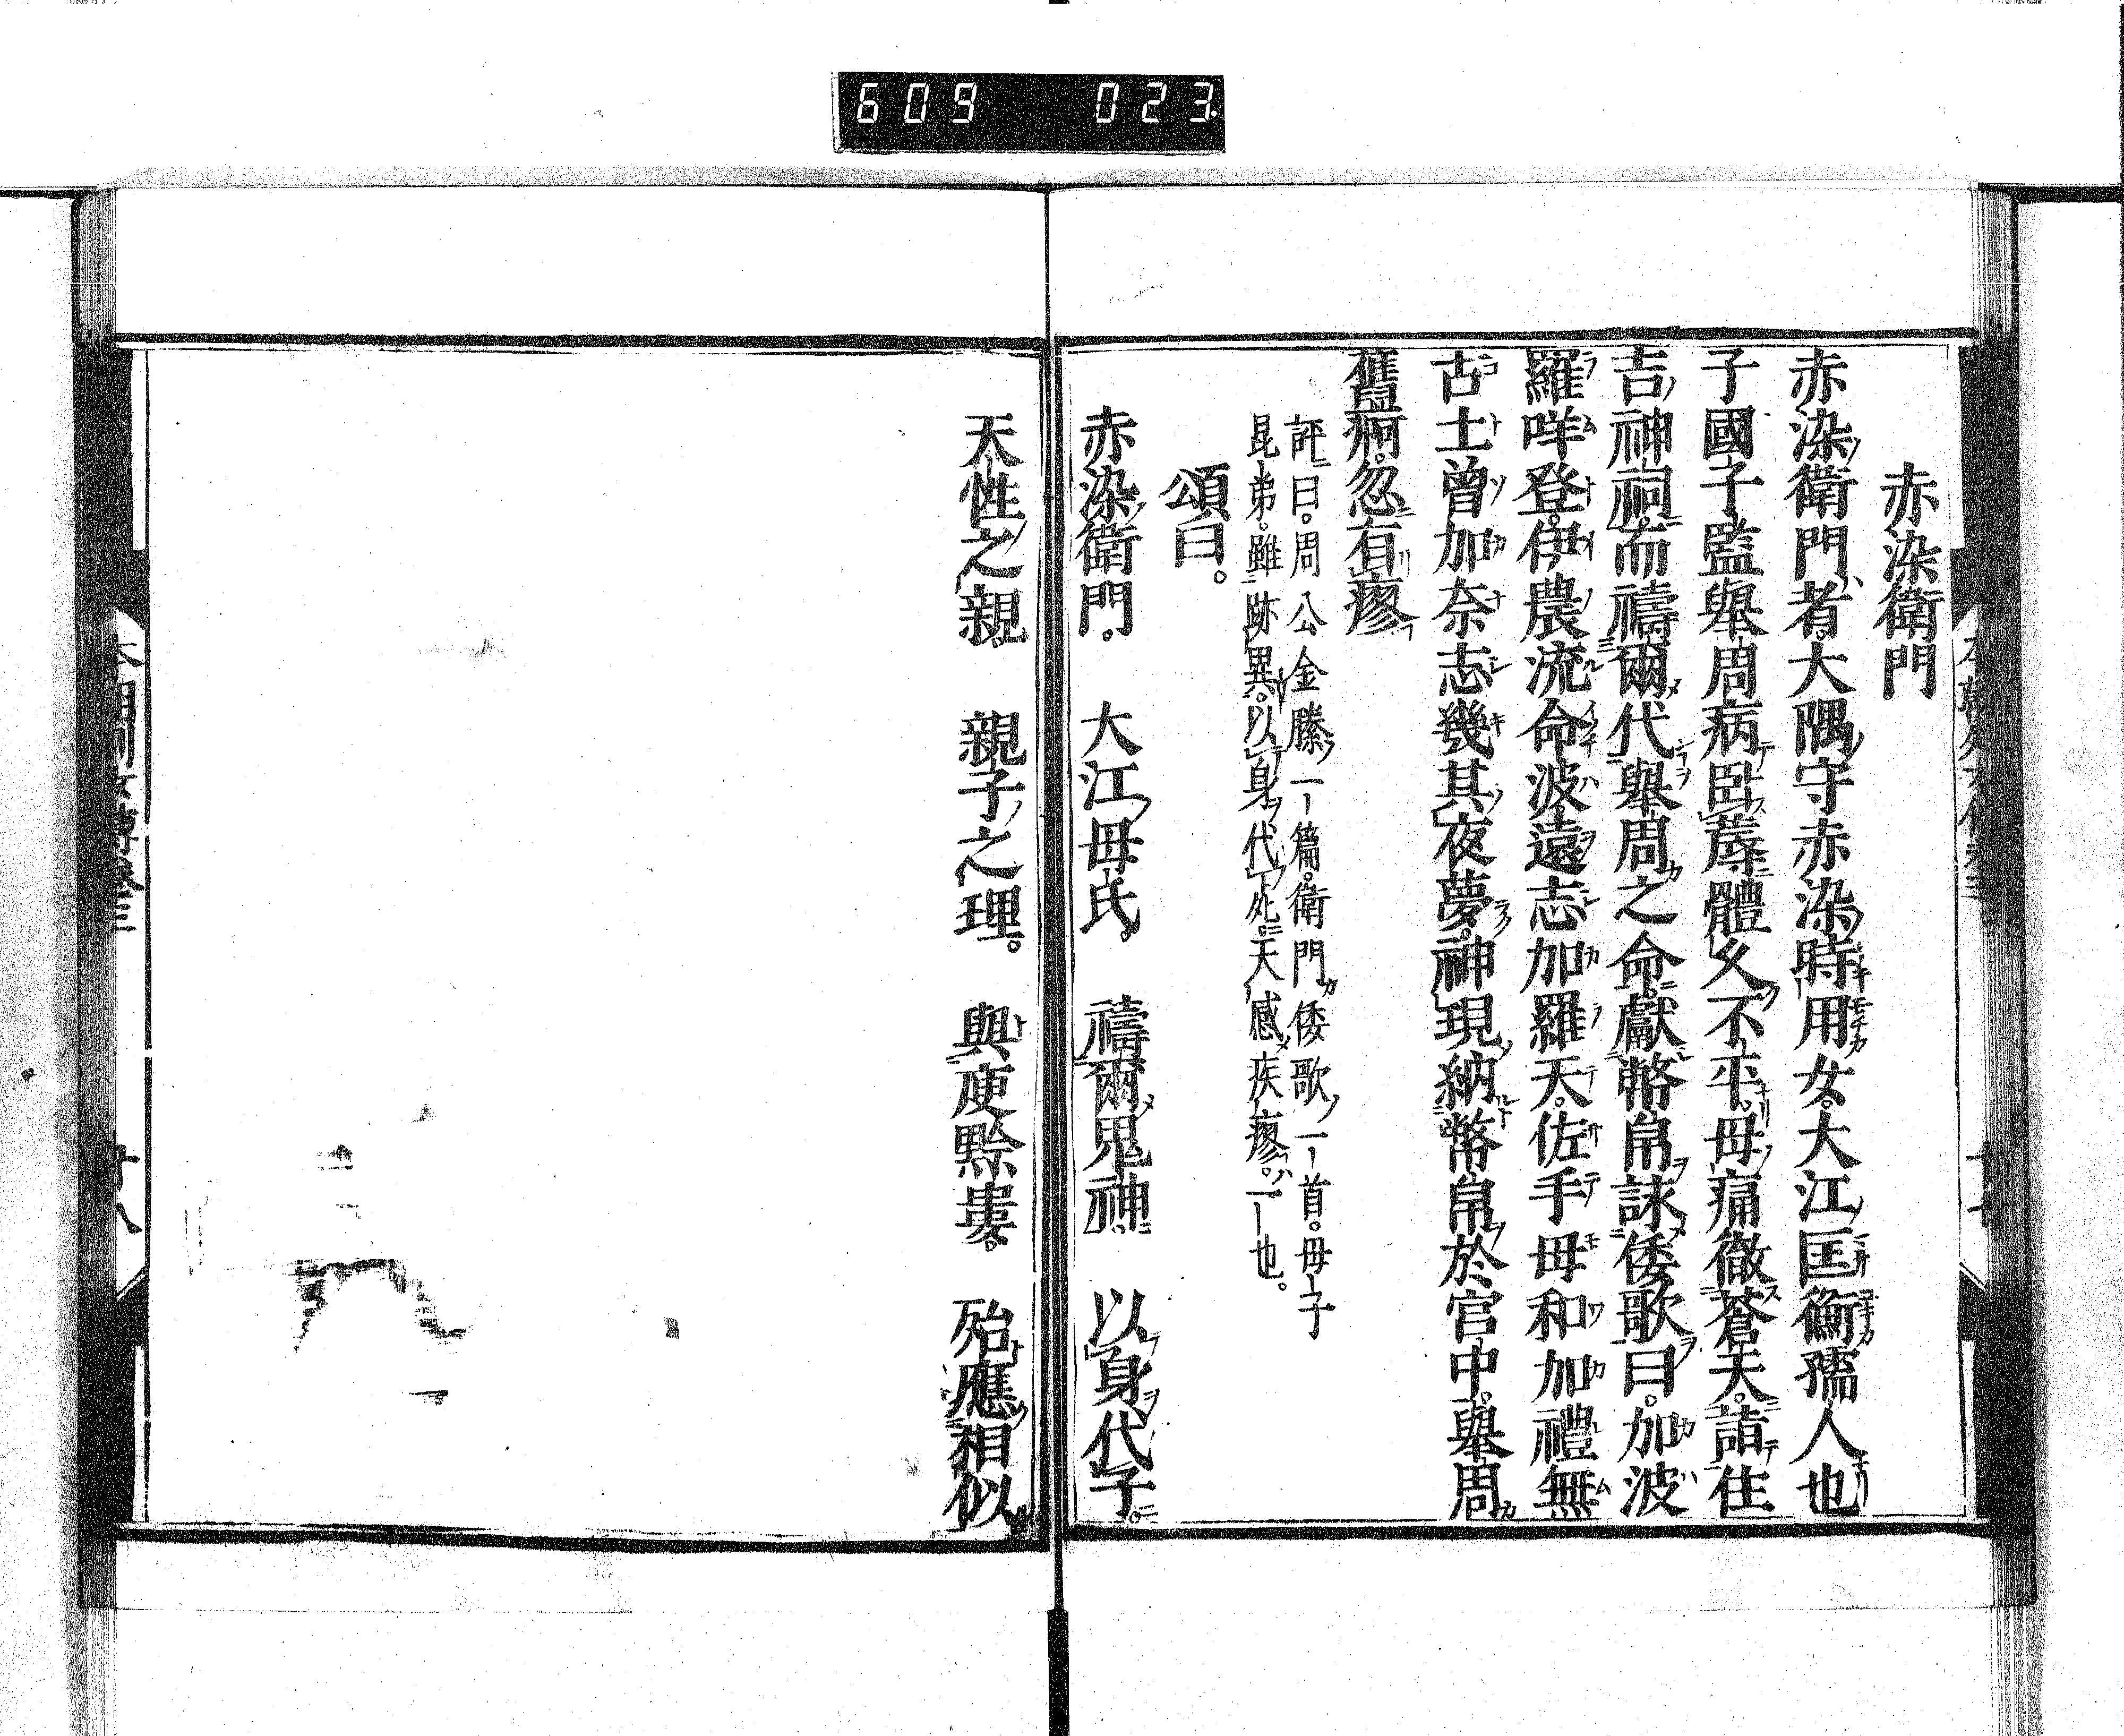 609 023
赤染衛門
赤染衛門者。大隅守赤染時用女。大江匡衡孺人也
子國子監舉周病臥蓐體久不平。母痛徹蒼天。詣住
吉神祠。而禱爾代舉周之命。獻幣帛詠倭歌曰。加波
羅咩登。伊農流命波。遠志加羅天。佐手毋和加禮無
古士曾加奈志幾其夜夢。神現納幣帛於宮中。舉周
舊痾。忽有瘳
評曰。周公金縢一篇。衛門倭歌一首。母子
昆弟。雖跡異。以身代死。天感疾瘳。一也。
頌曰。
赤染衛門。 大江母氏。 禱爾鬼神。 以身代子。
天性之親 親子之理。 與庾黔婁。 殆應相似